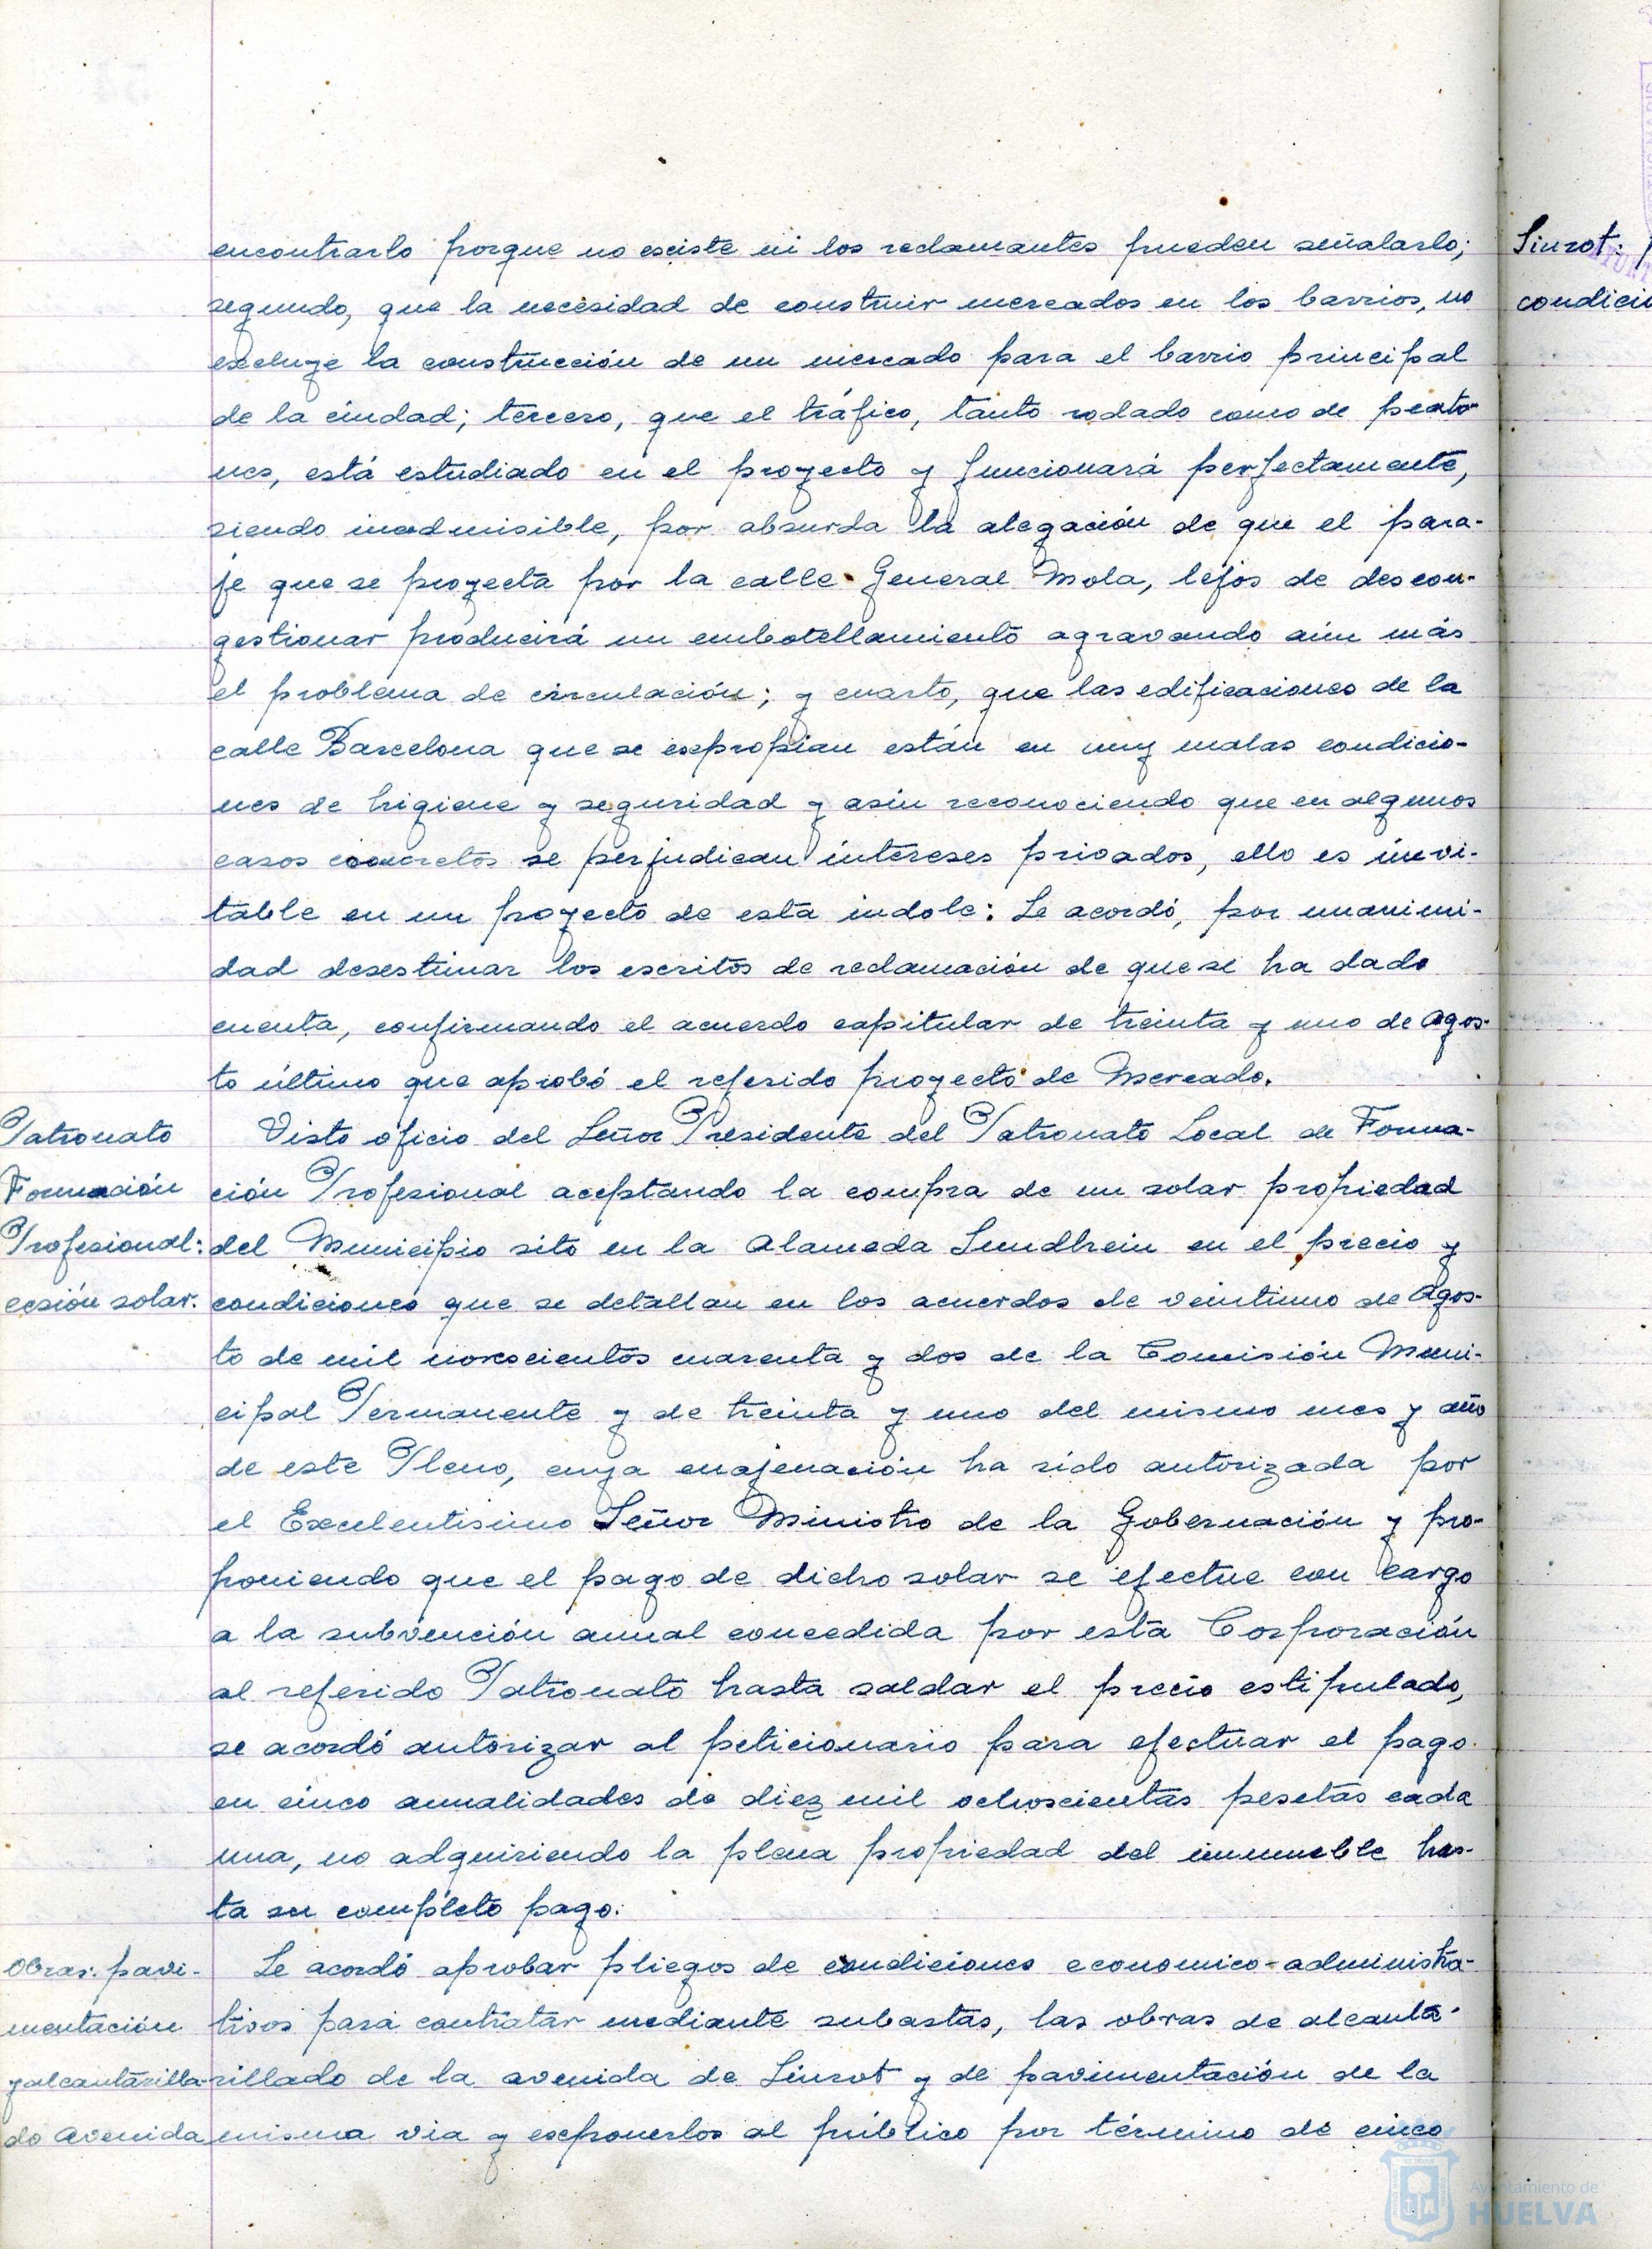 encontrarlo porque no existe ni los reclamantes pueden señalarlo;
segundo, que la necesidad de construir mercados en los barrios, no
excluye la construcción de un mercado para el barrio principal
de la ciudad; tercero, que el tráfico, tanto rodado como de peato-
nes, está estudiado en el proyecto y funcionará perfectamente,
siendo inadmisible, por absurda la alegación de que el para-
je que se proyecta por la calle General Mola, lejos de descon-
gestionar producirá un embotellamiento agravando aún más
el problema de circulación; y cuarto, que las edificaciones de la
calle Barcelona que se expropian están en muy malas condicio-
nes de higiene y seguridad y asín reconociendo que en algunos
casos concretos se perjudican intereses privados, ello es inevi-
table en un proyecto de esta índole: Se acordó, por unanimi-
dad desestimar los escritos de reclamación de que se ha dado
cuenta, confirmando el acuerdo capitular de treinta y uno de Agos-
to último que aprobó el referido proyecto de Mercado.
Patronato
Formación
Profesional:
cesión solar.
Visto oficio del Señor Presidente del Patronato Local de Forma-
ción Profesional aceptando la compra de un solar propiedad
del Municipio sito en la Alameda Sundhein en el precio y
condiciones que se detallan en los acuerdos de veintiuno de Agos-
to de mil novecientos cuarenta y dos de la Comisión Muni-
cipal Permanente y de treinta y uno del mismo mes y año
de este Pleno, cuya enajenación ha sido autorizada por
el Excelentisimo Señor Ministro de la Gobernación y pro-
poniendo que el pago de dicho solar se efectue con cargo
a la subvención anual concedida por esta Corporación
al referido Patronato hasta saldar el precio estipulado,
se acordó autorizar al peticionario para efectuar el pago
en cinco anualidades de diez mil ochoscientas pesetas cada
una, no adquiriendo la plena propiedad del inmueble has-
ta su completo pago.
Obras: pavi-
mentación
y alcantarilla-
do Avenida
Se acordó aprobar pliegos de condiciones economico-administra-
tivos para contratar mediante subastas, las obras de alcanta-
rillado de la avenida de Siurot y de pavimentación de la
misma via y exponerlos al público por término de cinco
Siurot:
condicio
Ayuntamiento de
HUELVA